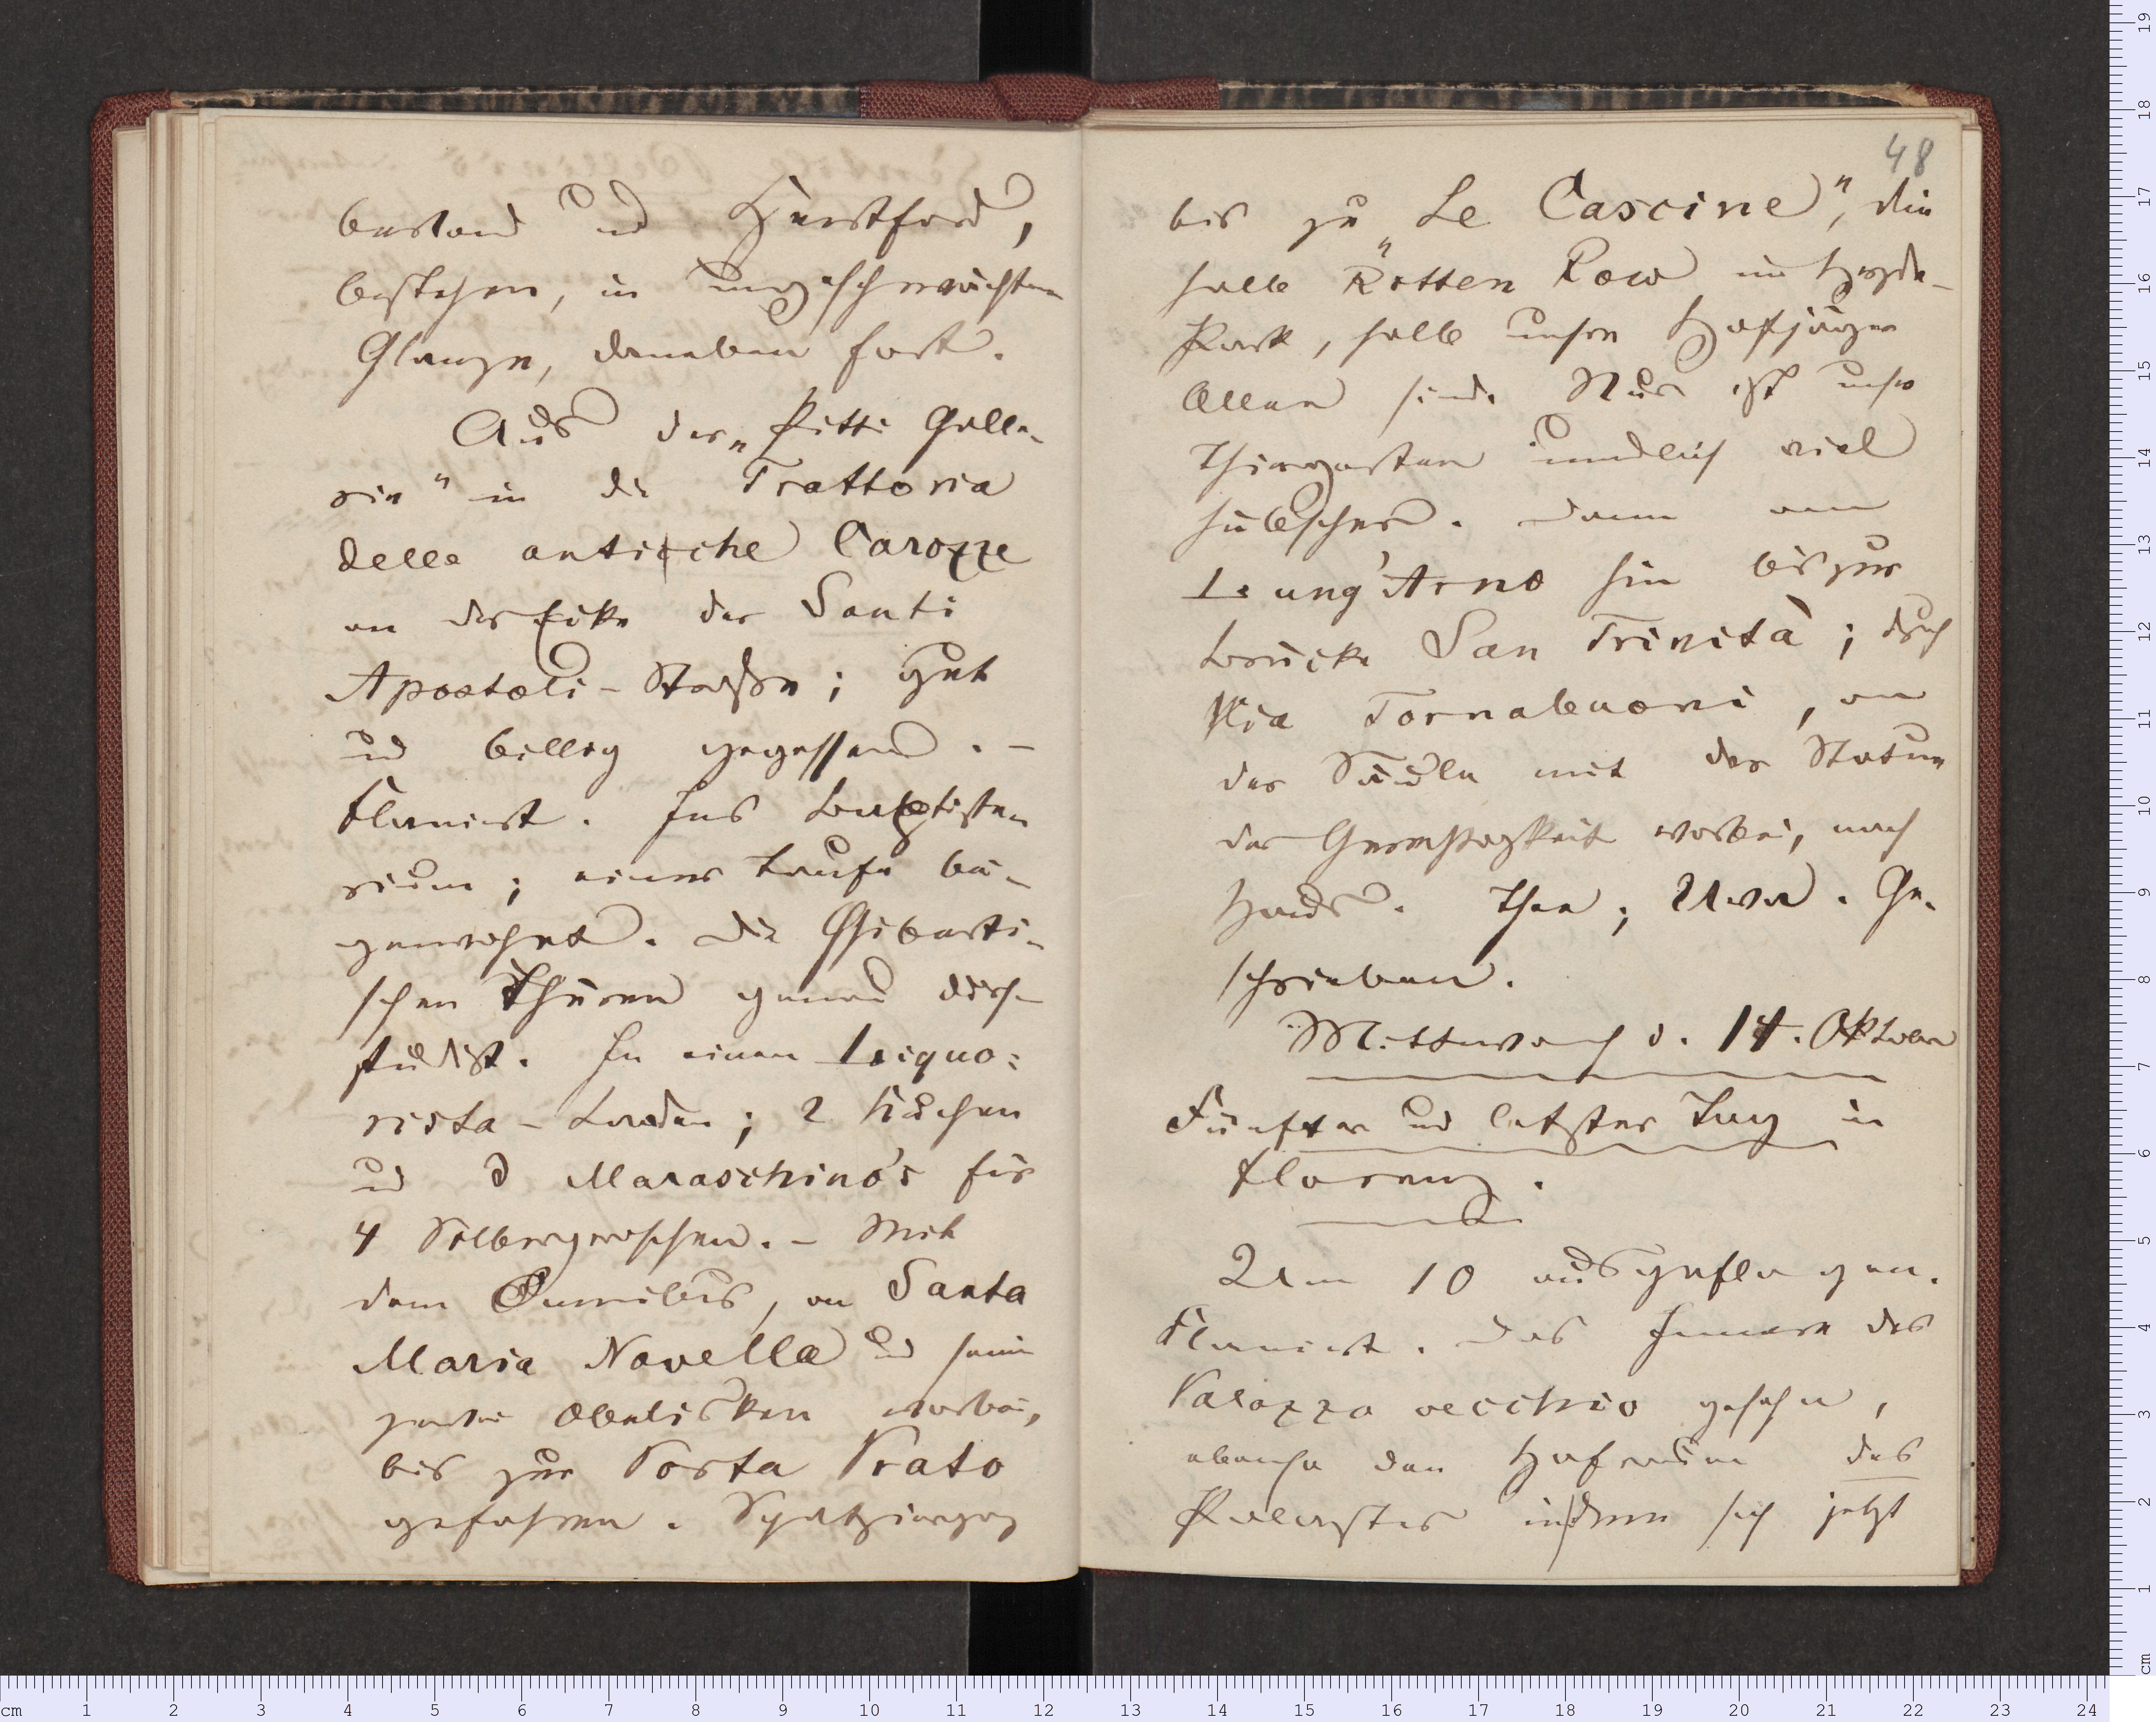 bestand und Hertford,
bestehen, in ungeschwächtem
Glanze, daneben fort.
Aus der „Pitti Galle-
rie“ in die Trattoria
delle antiche Carozze
an der Ecke der Santi
Apostoli-Straße; gut
und billig gegessen. –
Flanirt. Ins Baptiste-
rium; einer Taufe bei-
gewohnt. Die Ghiberti-
schen Thüren genau durch-
studirt. In einen Liquo-
rista-Laden; 2 Kuchen
und 3 Maraschino's für
4 Silbergroschen. – Mit
dem Omnibus, an Santa
Maria Novella und seinen
zwei Obelisken vorbei,
bis zur Porta Prato
gefahren. Spatziergang
48
bis zu „Le Cascine“, die
halb Rotten Row im Hyde-
Park, halb unsre Hofjäger
Allee sind. Nur ist unser
Thiergarten unendlich viel
hübscher. Dann am
Lung' Arno hin bis zur
Brücke San Trinità; durch
Via Tornabuoni, an
der Säule mit der Statue
der Gerechtigkeit vorbei, nach
Haus. Thee; Ruhe. Ge-
schrieben.
Mittwoch d. 14. Oktober
Fünfter und letzter Tag in
Florenz.
Um 10 ausgeflogen.
Flanirt. Das Innere des
Palazzo vecchio gesehn,
ebenso den Hofraum des
Palastes in dem sich jetzt